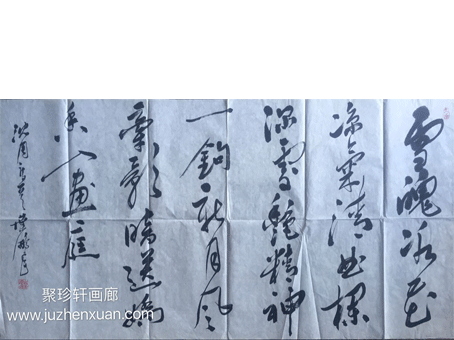 雪魄冰花
凉氣清曲欄
深處艷精神
一鈎新月風
牽影暗送嬌
香入畫庭
聚珍轩画廊
www.juzhenxuan.com